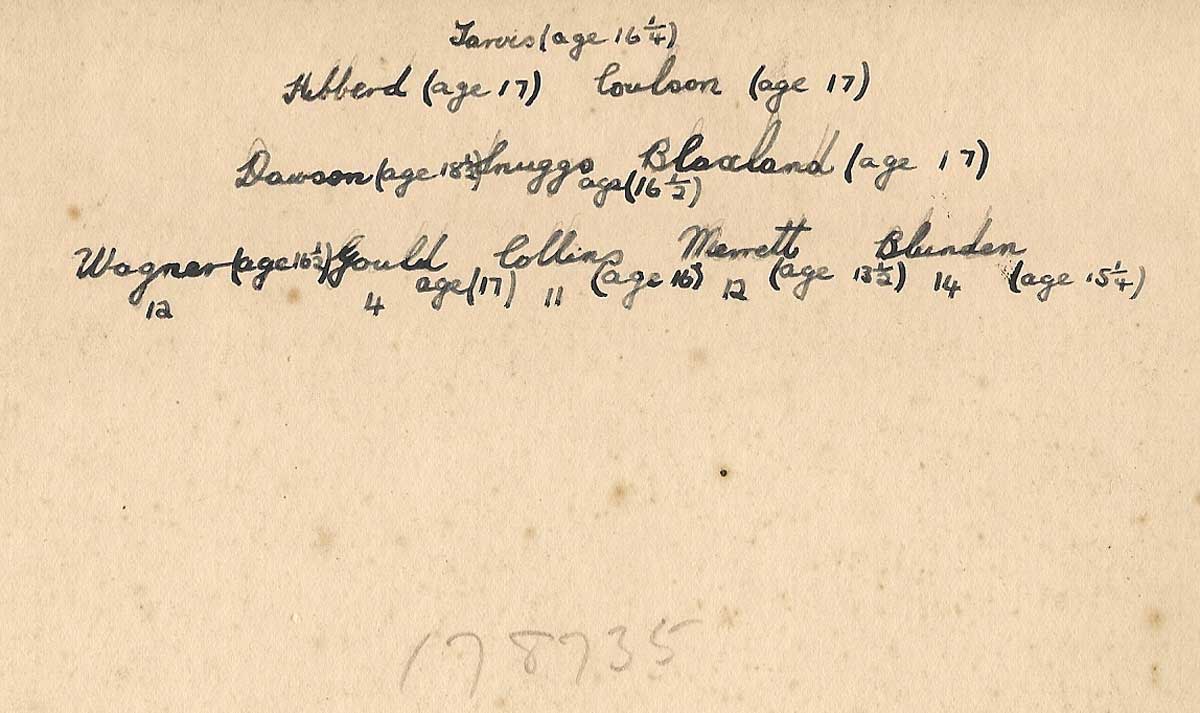 Jarvis (age 16 1/4)
Hebberd (age 17) Coulson (age 17)
Dawson (age 18 1/2) Snuggs age (16 1/2) Blaxland (age 17)
Wagner (age 16 1/2) Gould age (17) Collins (age 16) Merrett (age 13 1/2) Blunden (age 15 1/4)
12 4 11 12 14
178735